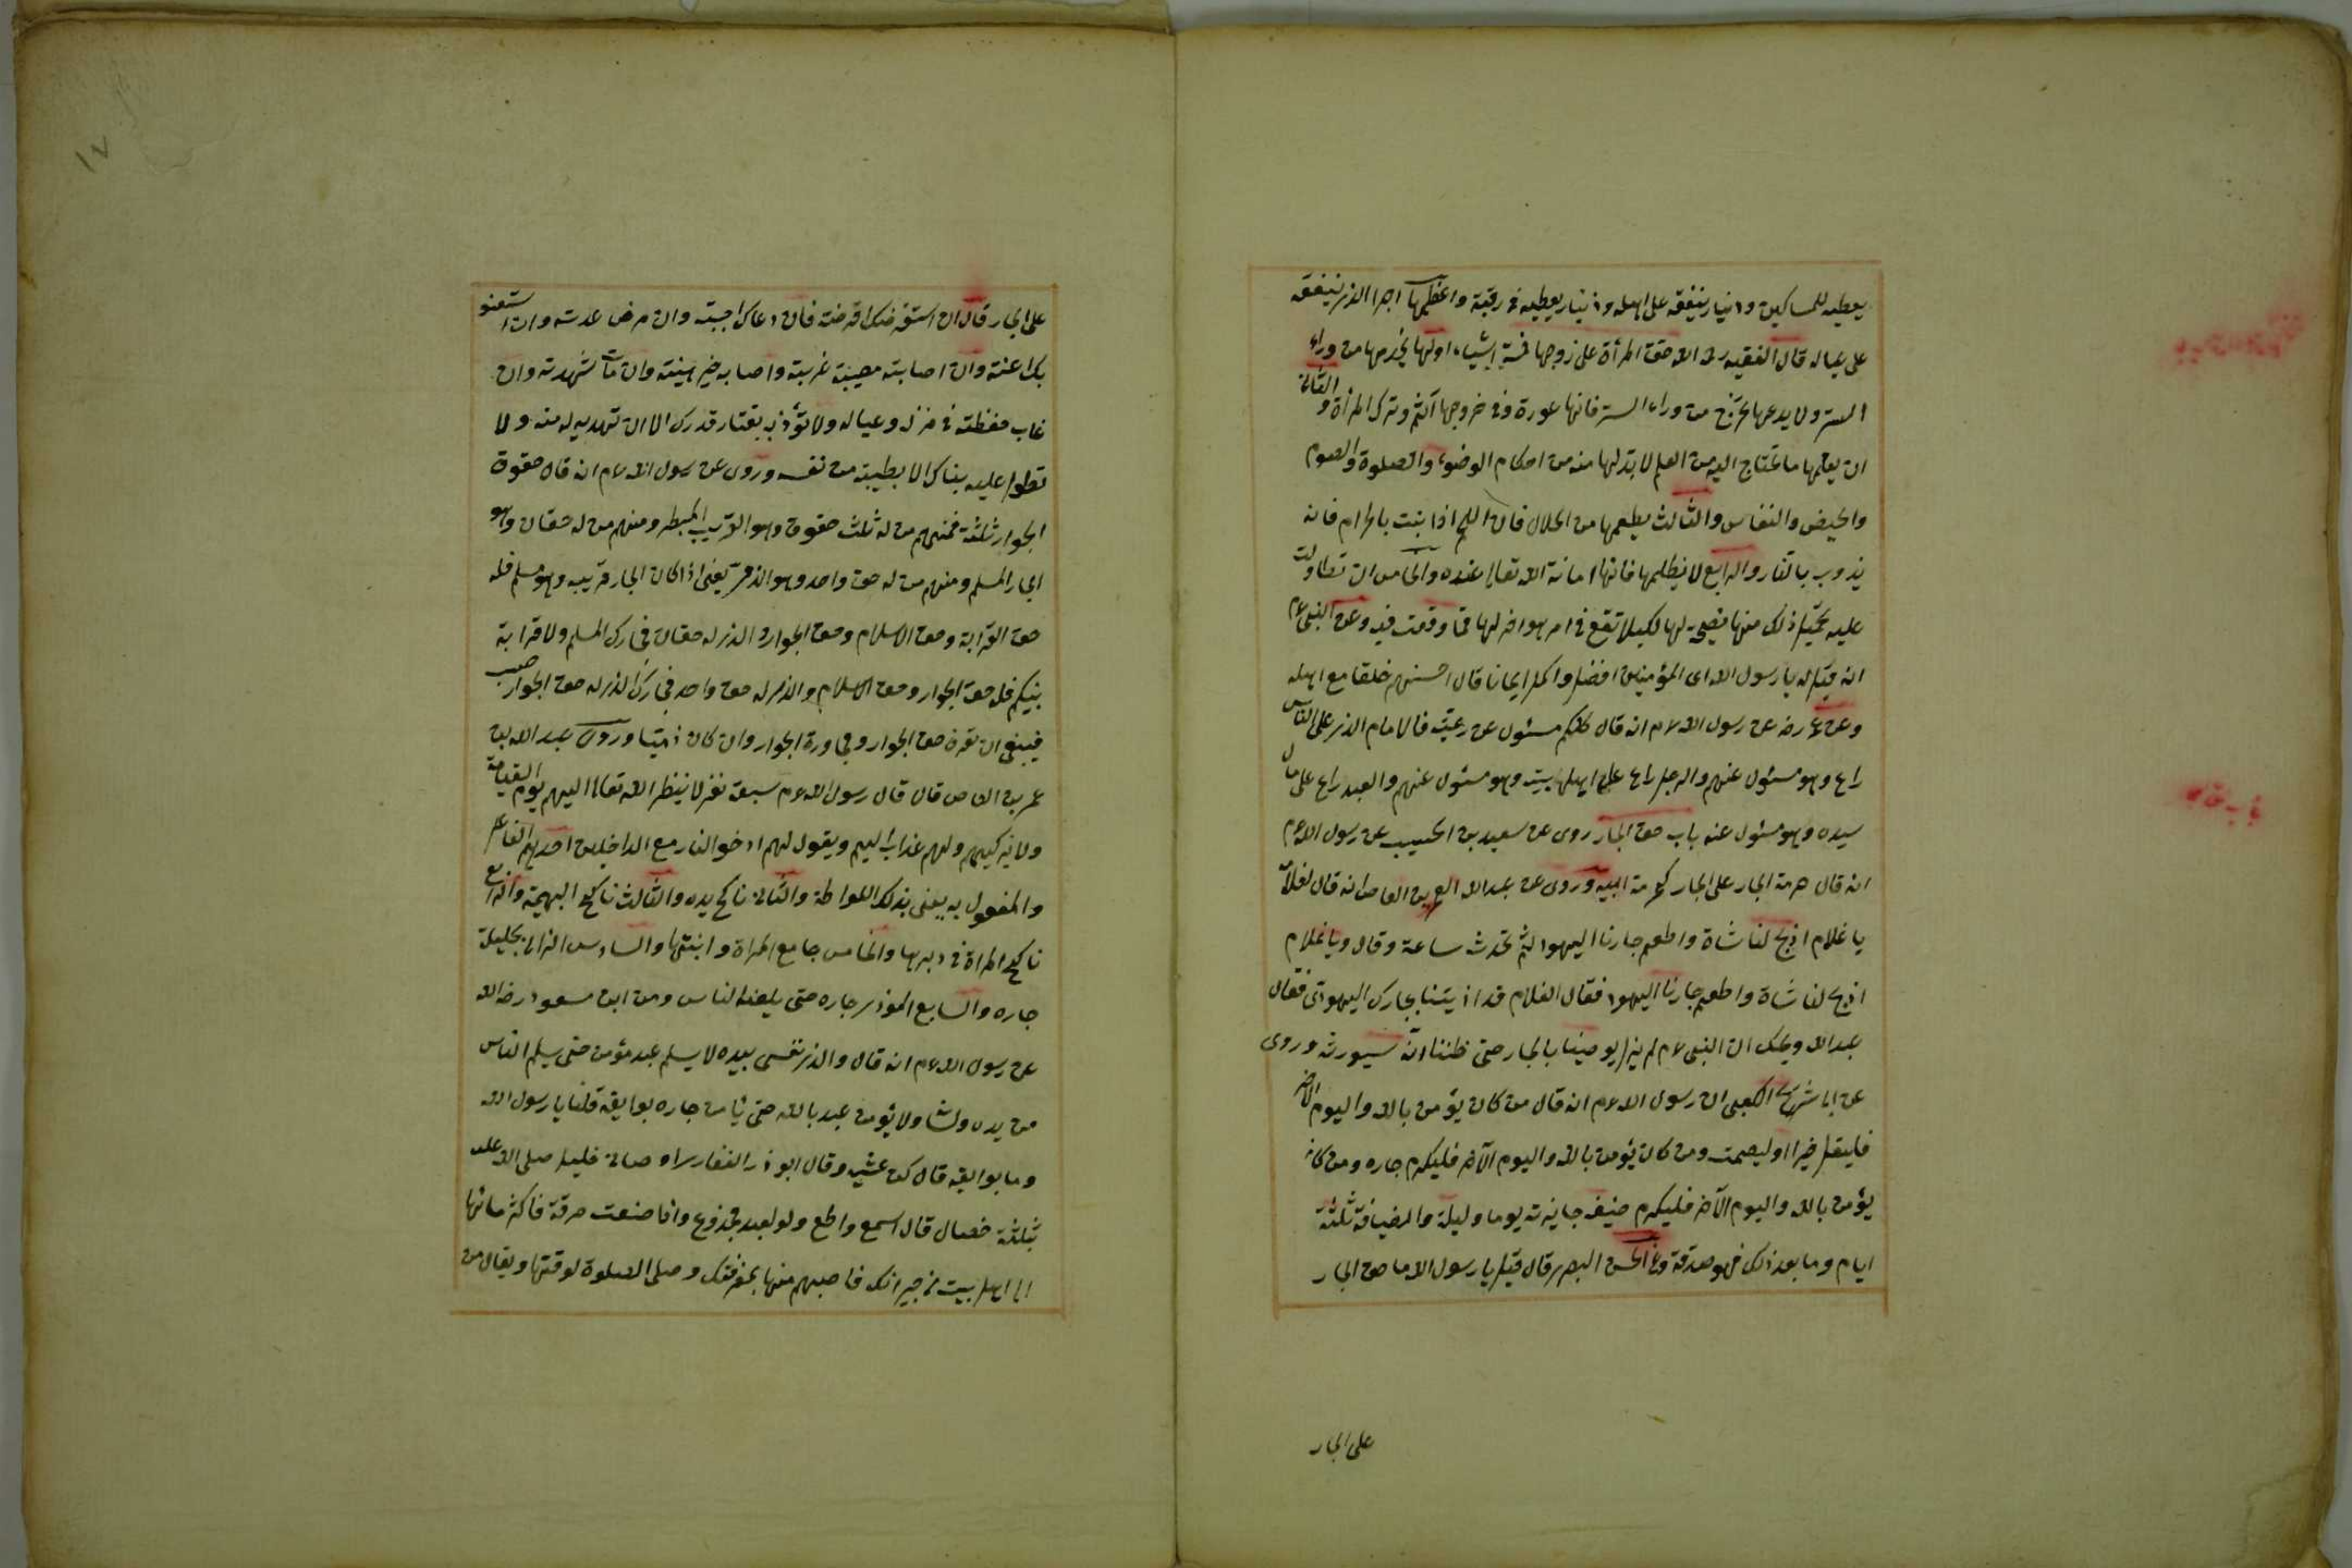 يعطيه للمساكين ودينار ينفقه على اهله ودينار يعطيه فى رقبة واعظمها اجرا الذى ينفقه
على عياله قال الفقيه رحمه الله حق المرأة على زوجها خمسة اشياء اولها يخدمها من وراء
الستر ولا يدعها تخرج من وراء الستر فانها عورة وفى خروجها آثم وترك المرأة والثانى
ان يعلمها ما تحتاج اليه من العلم لا بد لها منه من احكام الوضوء والصلوة والصوم
والحيض والنفاس والثالث يطعمها من الحلال فان اللحم اذا نبت بالحرام فانه
يذوب بالنار والرابع لا يظلمها فانها امانة الله تعالى عنده والخامس ان تطاولت
عليه يحتمل ذلك منها نصيحة لها لكيلا تقع فى امر هو اضر لها مما وقعت فيه وعن النبى عم
انه قيل له يا رسول الله اى المؤمنين افضل واكمل ايمانا قال احسنهم خلقا مع اهله
وعن عمر رض عن رسول الله عم انه قال كلكم مسئول عن رعيته فالامام الذى على الناس
راع وهو مسئول عنهم والرجل راع على اهل بيته وهو مسئول عنهم والعبد راع على مال
سيده وهو مسئول عنه باب حق الجار روى عن سعيد بن المسيب عن رسول الله عم
انه قال حرمة الجار على الجار كحرمة امه وروى عن عبد الله بن عمر بن العاص انه قال لغلامه
يا غلام اذبح لنا شاة واطعم جارنا اليهود ثم تحدث ساعة وقال ويا غلام
اذبح لنا شاة واطعم جارنا اليهود فقال الغلام قد اذيتنا بجارك اليهودى فقال
عبد الله ويحك ان النبى عم لم يزل يوصينا بالجار حتى ظننا انه سيورثه وروى
عن ابى شريح الكعبى ان رسول الله عم انه قال من كان يؤمن بالله واليوم الآخر
فليقل خيرا او ليصمت ومن كان يؤمن بالله واليوم الآخر فليكرم جاره ومن كان
يؤمن بالله واليوم الآخر فليكرم ضيفه جايزته يوما وليلة والضيافة ثلثة
ايام وما بعد ذلك فهو صدقة وعن الحسن البصرى قال قيل يا رسول الله ما حق الجار
على الجار
على الجار قال ان استقرضك اقرضته فان دعاك اجبته وان مرض عدته وان استعنو
بك اعنته وان اصابته مصيبة عزيته واصابه خير هنيته وان مات شهدته وان
غاب حفظته فى منزله وعياله ولا تؤذيه بقتار قدرك الا ان تهديه له منه ولا
تطول عليه بناك الا بطيبة من نفسه وروى عن رسول الله عم انه قال حقوق
الجوار ثلثة فمنهم من له ثلث حقوق وهو القريب المسلم ومنهم من له حقان وهو
الجار المسلم ومنهم من له حق واحد وهو الذمى يعنى اذا كان الجار قريبه وهو مسلم فله
حق القرابة وحق الاسلام وحق الجوار والذى له حقان فجارك المسلم ولا قرابة
بينكم فله حق الجوار وحق الاسلام والذى له حق واحد فجارك الذى له حق الجوار
فينبغى ان تعرف حق الجوار ومجاورة الجوار وان كان ذميا وروى عبد الله بن
عمر بن العاص قال قال رسول الله عم سبعة نفر لا ينظر الله تعالى اليهم يوم القيامة
ولا يزكيهم ولهم عذاب اليم ويقول لهم ادخلو النار مع الداخلين احدهم الفاعل
والمفعول به يعنى بذلك اللواطة والثانى ناكح يده والثالث ناكح البهيمة والرابع
ناكح المراة فى دبرها والخامس جامع المراة وابنتها والسادس الزانى بحليلة
جاره والسابع الموذى جاره حتى يلعنه الناس وعن ابن مسعود رض الله
عن رسول الله عم انه قال والذى نفسى بيده لا يسلم عبد مؤمن حتى يسلم الناس
من يده ولسانه ولا يؤمن عبد بالله حتى يأمن جاره بوايقه قلنا يا رسول الله
وما بوايقه قال غشه وقال ابو ذر الغفارى اوصانى خليلى صلى الله عليه
بثلثة خصال قال اسمع واطع ولو لعبد مجدوع واذا صنعت مرقة فاكثر مائها
الى اهل بيت من جيرانك فاصبهم منها بمغرفتك وصلى الصلوة لوقتها ويقال من